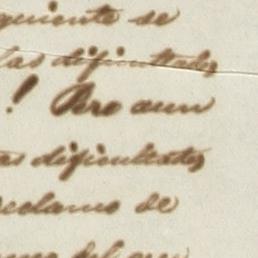 quiente se
las dificultades
! Pero aun
as dificultades
eclamo de
del